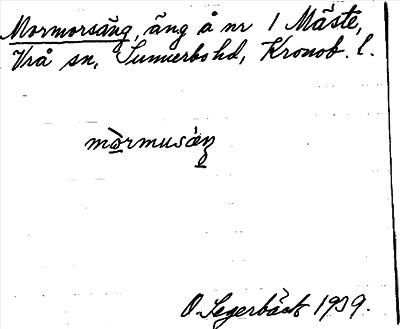 Mormorsäng, äng å nr 1 Mästé,
Vrå sn, Sunnerbo hd, Kronob. l.
mòrmusáŋ
O. Segerbäck 1939.